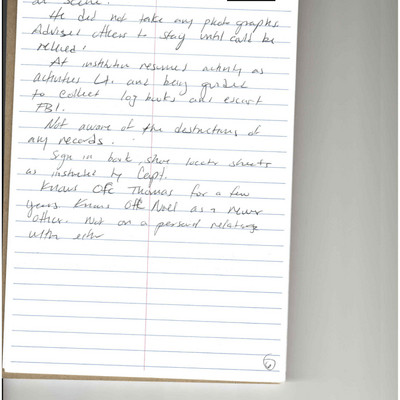 at scene.
He did not take any photographs.
Advised others to stay until could be
relieved.
At institution resumed activity as
activities Lt. and being guided
to collect log books and escort
FBI.
Not aware of the destructions of
any records.
Sign in book, shoe locator sheets
as instructed by Capt.
Knows Ofc Thomas for a few
years Knows Ofc Noel as a newer
Other. Not on a personal relations
with eithr
6